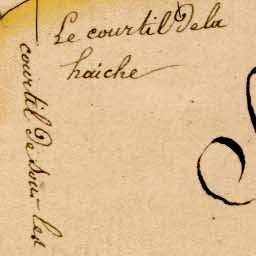 Le courtil De la
haiche
courtil De sous-les